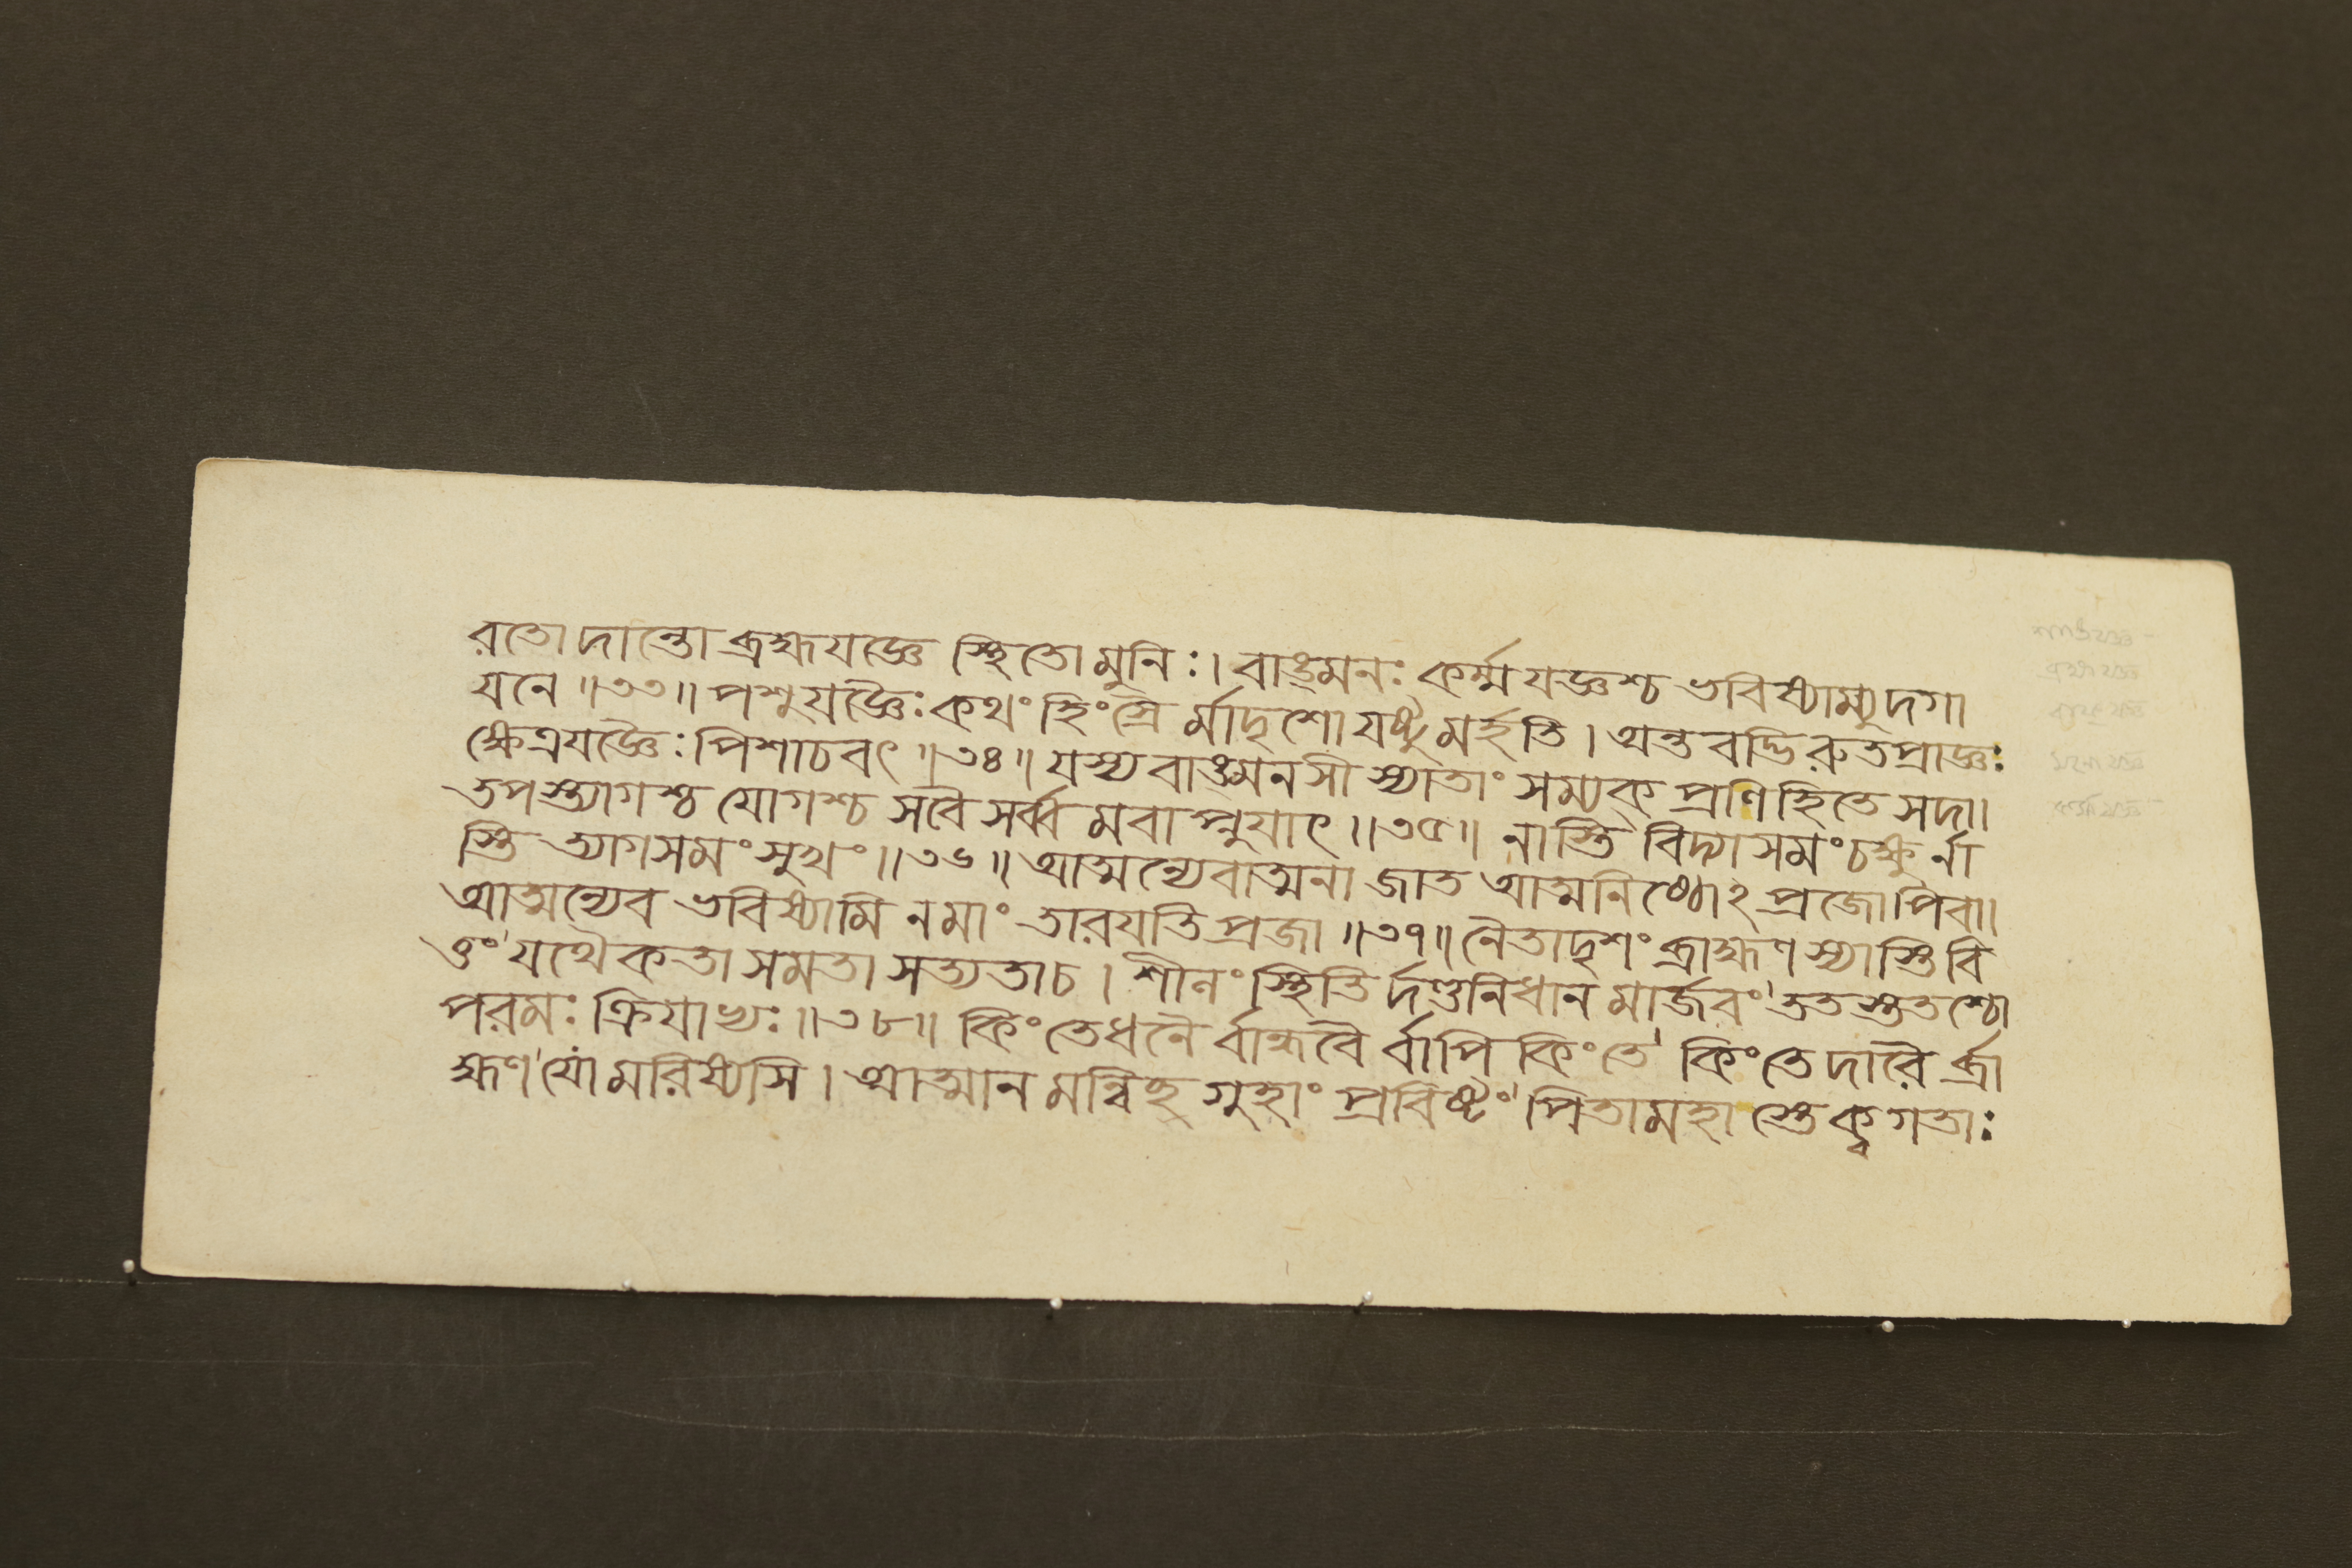 রতো দান্তো ব্রহ্মযজ্ঞে স্থিতো মুনিঃ। বাঙ্মনঃ কর্ম্মযজ্ঞশ্চ ভবিষ্যাম্যুদগা
যনে ॥৩৩॥ পশুযজ্ঞৈঃ কথং হিংস্রৈ র্মাদৃশো যষ্টুমর্হতি। অন্তবদ্ভিরুতপ্রাজ্ঞঃ
ক্ষেত্রযজ্ঞৈঃ পিশাচবৎ ॥৩৪॥ যস্য বাঙ্মনসী স্যাতাং সম্যক্ প্রণিহিতে সদা।
তপস্ত্যাগশ্চ যোগশ্চ সবৈ সর্ব্বমবাপ্নুযাৎ ॥৩৫॥ নাস্তি বিদ্যাসমং চক্ষুর্না
স্তি ত্যাগসমং সুখং ॥৩৬॥ আত্মন্যেবাত্মনা জাত আত্মনিষ্ঠোঽপ্রজোপিবা।
আত্মন্যেব ভবিষ্যামি নমাং তারযতি প্রজা ॥৩৭॥ নৈতাদৃশং ব্রাহ্মণস্যাস্তি বি
ত্তং যথৈকতা সমতা সত্যতাচ। শীলং স্থিতি র্দণ্ডনিধানমার্জবং ততস্ততশ্চো
পরমঃ ক্রিযাখ্যঃ ॥৩৮॥ কিং তে ধনৈ র্বান্ধবৈ র্বাপি কিং তে কিং তে দারৈ র্ব্রা
হ্মণ যো মরিষ্যসি। আত্মানমন্বিচ্ছ গুহাং প্রবিষ্টং পিতামহাস্তে ক্ব গতাঃ